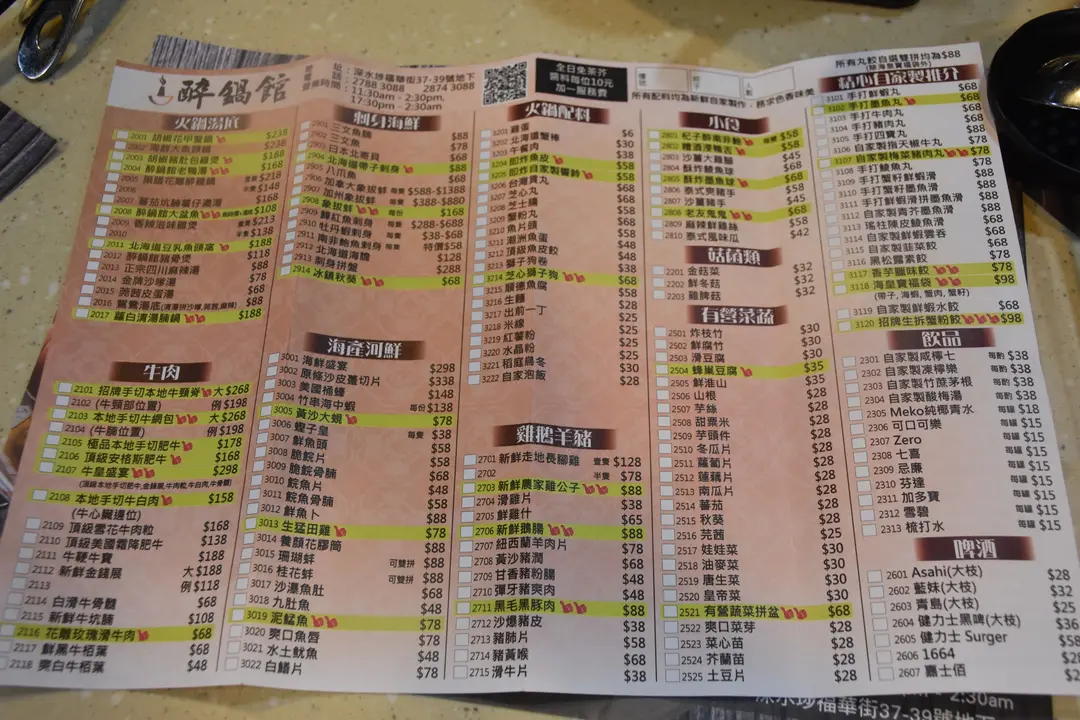 醉鍋館
地址：深水埗福華街37-39號地下
電話：2788 3088 2874 3088
營業時間：11:30am - 2:30pm,
17:30pm - 2:30am
全日免茶芥
醬料每位10元
加一服務費
所有配料均為新鮮自家製作，務求色香味美
所有丸餃自選雙拼均為$88
火鍋湯底
2001 胡椒花甲蟹鍋 $238
$268
2003 胡椒豬肚包雞煲 $168
2004 醉鍋館老鴨湯 $168
$218
$148
2007 蕃茄坑腩薯仔濃湯 $168
2008 醉鍋館大盆魚 $108
2009 香辣滋味雞煲 $213
2010 $138
2011 北海道豆乳魚頭窩 $188
2012 醉鍋館豬骨煲 $118
2013 正宗四川麻辣湯 $88
2014 金牌沙嗲湯 $78
2015 芫茜皮蛋湯 $68
2016 鴛鴦湯底 $88
2017 蘿白清湯腩鍋 $188
牛肉
2101 招牌手切本地牛頸脊 大 $268
2102 (牛頸部位置) 例 $198
2103 本地手切牛䐁包 大 $268
2104 (牛腩位置) 例 $198
2105 極品本地手切肥牛 $178
2106 頂級安格斯肥牛 $168
2107 牛皇盛宴 $298
(頂級本地手切肥牛,金錢展,牛肉粒,牛白肉,牛骨髓)
2108 本地手切牛白肉 $158
(牛心臟邊位)
2109 頂級雪花牛肉粒 $168
2110 頂級美國霜降肥牛 $138
2111 牛硬牛寶 $188
2112 新鮮金錢展 大 $188
2113 例 $118
2114 白滑牛骨髓 $68
2115 新鮮牛坑腩 $108
2116 花雕玫瑰滑牛肉 $68
2117 鮮黑牛栢葉 $68
2118 爽白牛栢葉 $48
刺身海鮮
2901 三文魚腩 $88
2902 三文魚 $78
2903 日本北寄貝 $68
2904 北海道帶子刺身 $88
2905 八爪魚 $68
2906 加拿大象拔蚌 每隻 $588-$1388
2907 加州象拔蚌 每隻 $388-$880
2908 象拔蚌 每份 $168
2909 鱘虹魚刺身 每隻 $288-$688
2910 牡丹蝦刺身 每隻 $38-$68
2911 南非鮑魚刺身 每隻 特價$58
2912 北海道海膽 $128
2913 刺身拼盤 $288
2914 冰鎮秋葵 $68
海產河鮮
3001 海鮮盛宴 $298
3002 原條沙皮躉切片 $338
3003 美國桶蠔 $148
3004 竹串海中蝦 每份 $138
3005 黃沙大蜆 $78
3006 蟶子皇 每隻 $38
3007 鮮魚頭 $58
3008 脆鯇片 $58
3009 脆鯇骨腩 $68
3010 鯇魚片 $48
3011 鯇魚骨腩 $58
3012 鮮魚卜 $78
3013 生猛田雞 $88
3014 養顏花膠筒 $88
3015 珊瑚蚌 可雙拼 $88
3016 桂花蚌 可雙拼 $88
3017 沙瀑魚肚 $68
3018 九肚魚 $48
3019 泥鯭魚 $78
3020 爽口魚唇 $78
3021 水土魷魚 $48
3022 白鱔片 $78
火鍋配料
3201 雞蛋 $6
3202 北海道蟹棒 $30
3203 牛筋 $38
3204 即炸魚皮 $58
3205 即炸自家製響鈴 $58
3206 台灣貢丸 $58
3207 芝心丸 $68
3208 芝士鱔 $68
3209 蟹粉丸 $68
3210 魚片頭 $58
3211 潮洲魚蛋 $58
3212 頂級魚皮餃 $48
3213 獅子狗卷 $38
3214 芝心獅子狗 $68
3215 順德魚腐 $58
3216 生麵 $28
3217 出前一丁 $25
3218 米線 $25
3219 紅薯粉 $25
3220 水晶粉 $30
3221 稻庭烏冬 $30
3222 自家泡飯 $28
雞鵝羊豬
2701 新鮮走地長腳雞 壹隻 $128
2702 半隻 $78
2703 新鮮農家雞公子 $88
2704 滑雞片 $38
2705 鮮雞什 $65
2706 新鮮鵝腸 $88
2707 紐西蘭羊肉片 $78
2708 黃沙豬潤 $68
2709 甘香豬粉腸 $48
2710 彈牙豬爽肉 $48
2711 黑毛黑豚肉 $88
2712 沙爆豬皮 $38
2713 豬肺片 $58
2714 豬黃喉 $68
2715 滑牛片 $38
小食
2801 杞子醉南非鮑 每隻 $58
2802 糟酒浸鴨舌 $58
2803 沙薑大雞腳 $45
2804 酥炸鯪魚球 $58
2805 酥炸墨魚球 $68
2806 泰式爽豬手 $58
2807 沙薑豬手 $45
2808 老友鬼鬼 $68
2809 麻辣鮮雞絲 $58
2810 泰式風味瓜 $42
菇菌類
2201 金菇菜 $32
2202 鮮冬菇 $32
2203 雞脾菇 $32
有營菜蔬
2501 炸枝竹 $30
2502 鮮腐竹 $30
2503 滑豆腐 $30
2504 蜂巢豆腐 $35
2505 鮮淮山 $35
2506 山根 $28
2507 芋絲 $28
2508 甜粟米 $28
2509 芋頭件 $28
2510 冬瓜片 $28
2511 蘿蔔片 $28
2512 蓮藕片 $28
2513 南瓜片 $28
2514 蕃茄 $28
2515 秋葵 $28
2516 芫茜 $25
2517 娃娃菜 $30
2518 油麥菜 $30
2519 唐生菜 $30
2520 皇帝菜 $30
2521 有營蔬菜拼盆 $68
2522 爽口菜芽 $28
2523 菜心苗 $28
2524 芥蘭苗 $28
2525 土豆片 $28
精心自家製推介
3101 手打鮮蝦丸 $68
3102 手打墨魚丸 $68
3103 手打牛肉丸 $68
3104 手打豬肉丸 $68
3105 手打四寶丸 $78
3106 自家製指天椒牛丸 $78
3107 自家製梅菜豬肉丸 $78
3108 手打鯪魚丸 $78
3109 手打鮮蝦滑 $88
3110 手打蟹籽墨魚滑 $88
3111 手打鮮蝦滑拼墨魚滑 $88
3112 自家製青芥墨魚滑 $88
3113 瑤柱陳皮鯪魚滑 $68
3114 自家製鮮蝦雲吞 $68
3115 自家製韮菜餃 $68
3116 黑松露素餃 $68
3117 香芋臘味餃 $78
3118 海皇寶福袋 $98
(帶子, 海蝦, 蟹肉, 蟹籽)
3119 自家製鮮蝦水餃 $68
3120 招牌生拆蟹粉餃 $98
飲品
2301 自家製咸檸七 每酌 $38
2302 自家製凍檸樂 每酌 $38
2303 自家製竹蔗茅根 每酌 $38
2304 自家製酸梅湯 每酌 $38
2305 Meko純椰青水 每罐 $18
2306 可口可樂 每罐 $15
2307 Zero 每罐 $15
2308 七喜 每罐 $15
2309 忌廉 每罐 $15
2310 芬達 每罐 $15
2311 加多寶 每罐 $15
2312 雪碧 每罐 $15
2313 梳打水 每罐 $15
啤酒
2601 Asahi(大枝) $28
2602 藍妹(大枝) $32
2603 青島(大枝) $25
2604 健力士黑啤(大枝) $36
2605 健力士 Surger $58
2606 1664
2607 嘉士佰
2:30am
深水埗福華街37-39號地